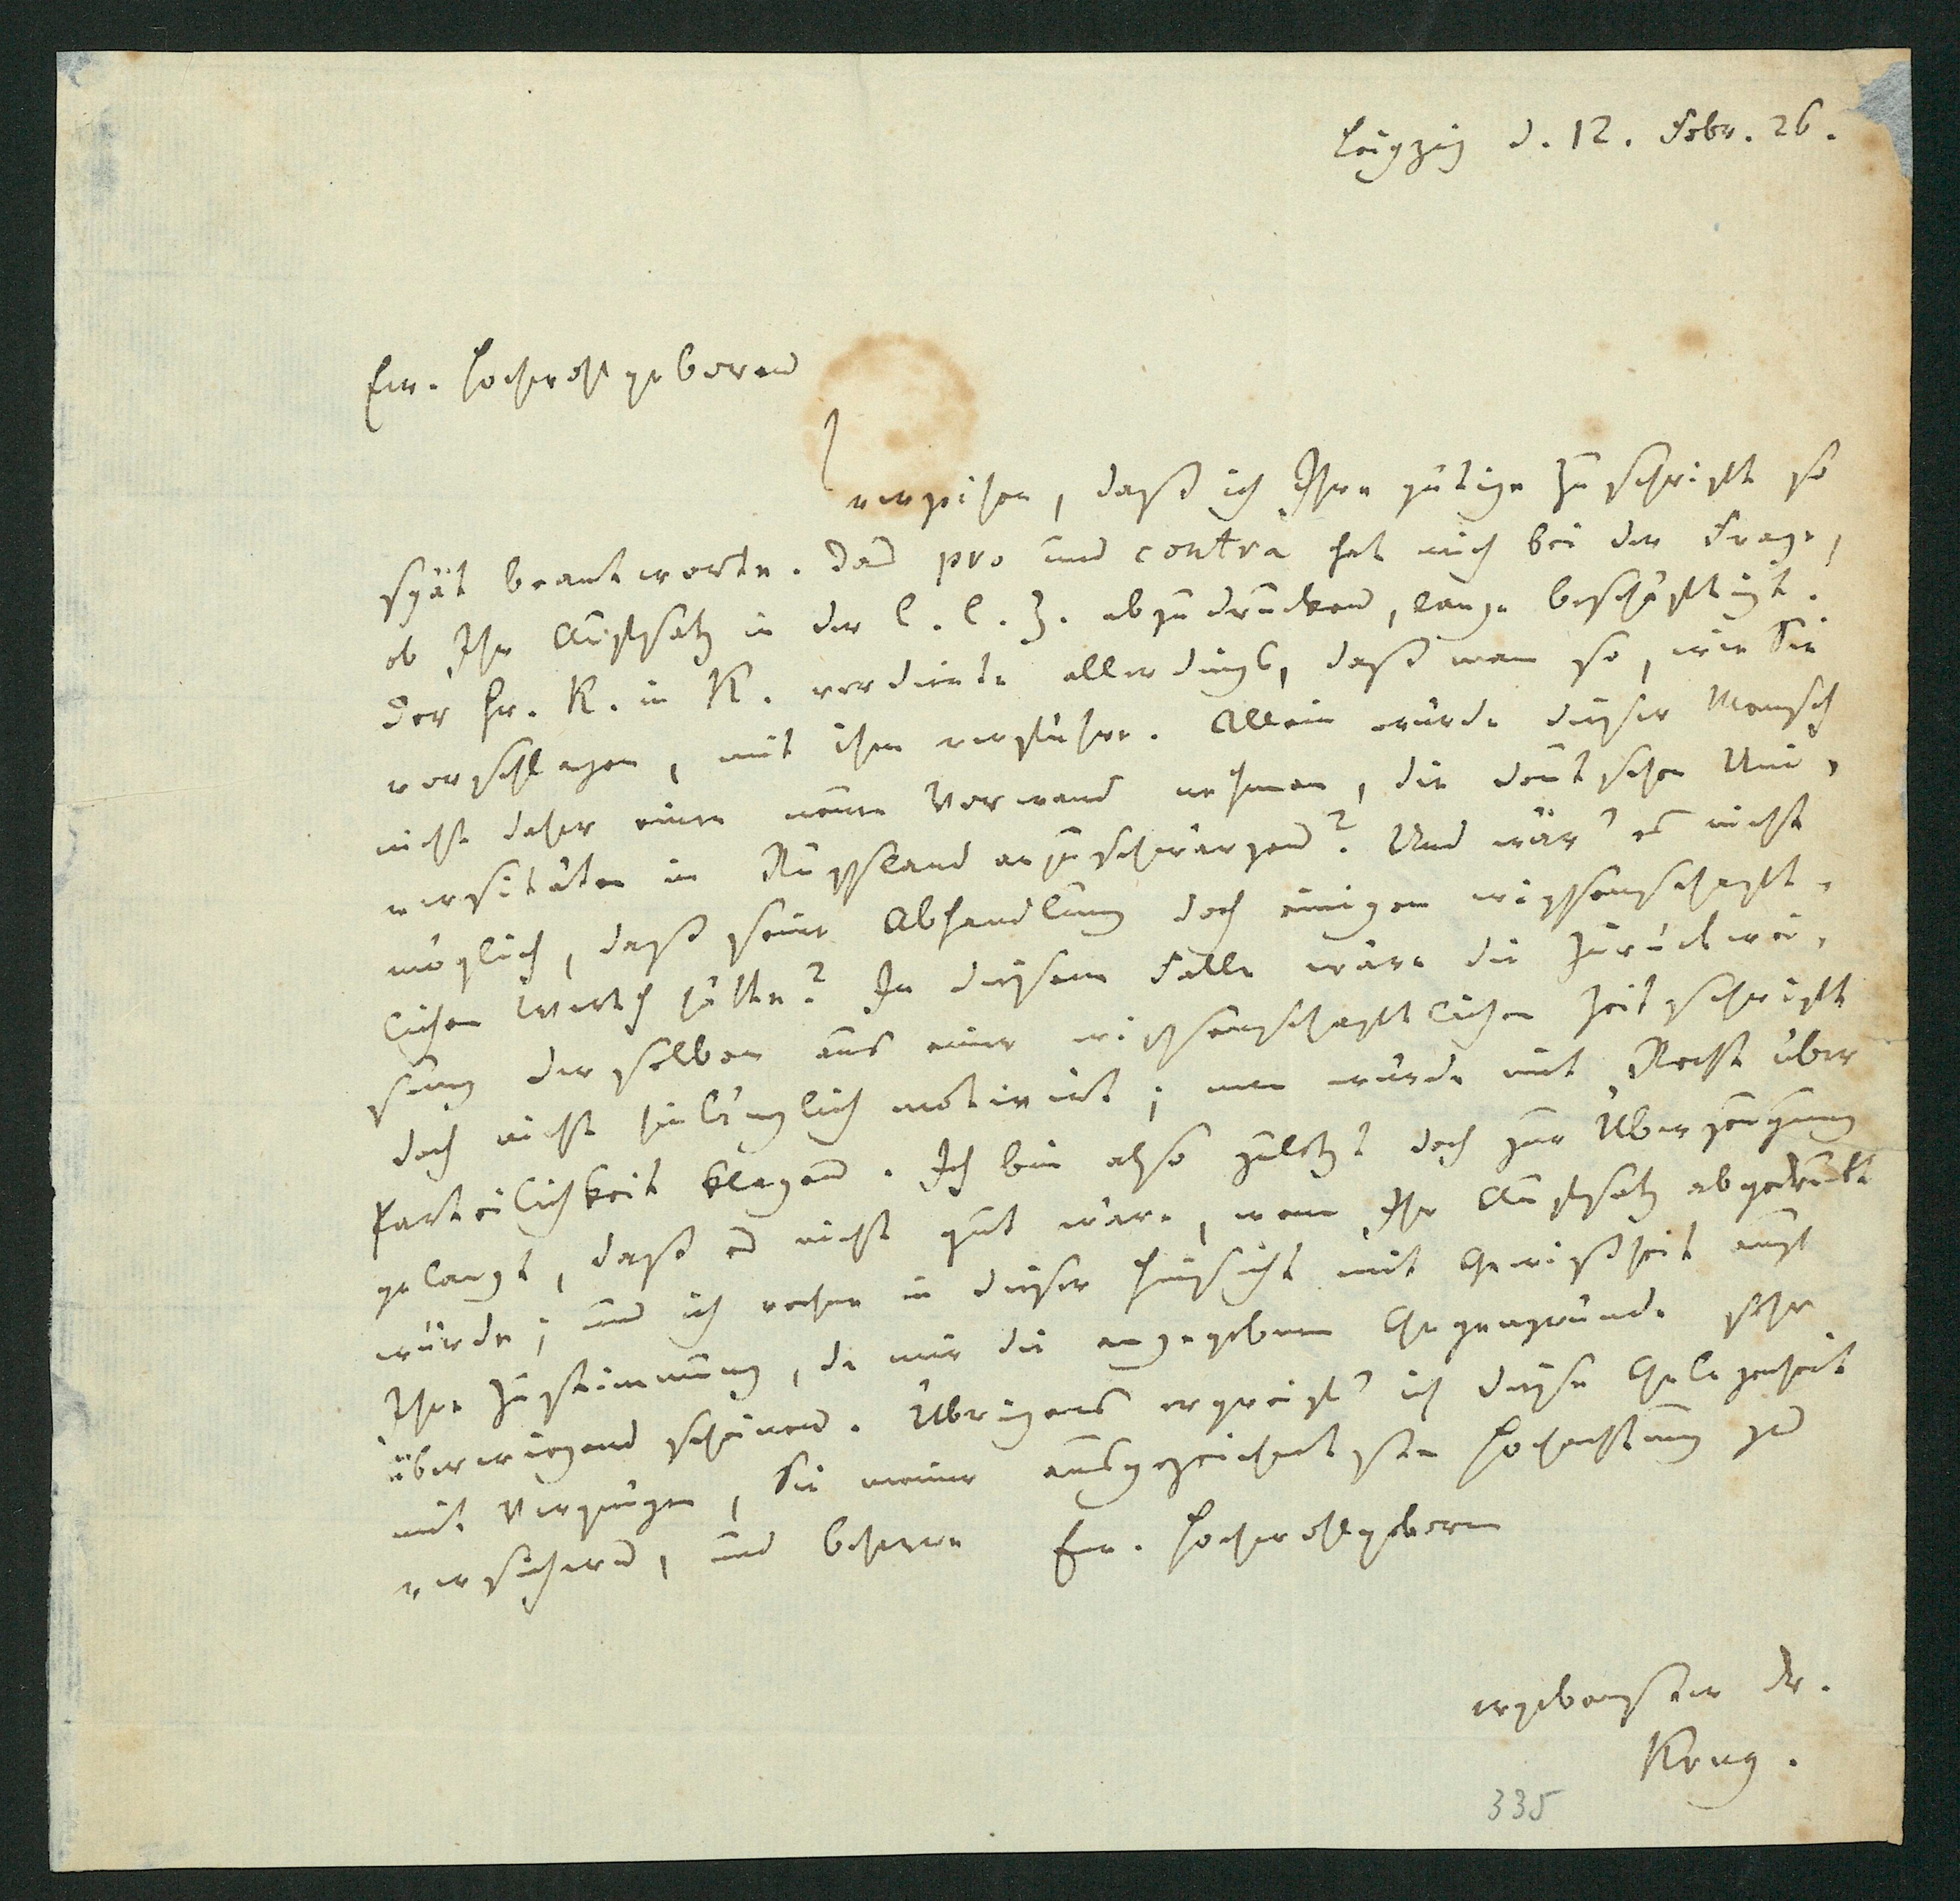 Leipzig d. 12. Febr. 26.
Ew. Hochwohlgeboren
verzeihen, daß ich Ihre gütige Zuschrift so
spät beantworte. Das pro und contra hat mich bei der Frage,
ob Ihr Aufsatz in der L. L. Z. abzudrucken, lange beschäftigt.
Der Hr. K. in K. verdiente allerdings, daß man so, wie Sie
vorschlagen, mit ihm verführe. Allein würde dieser Mensch
nicht daher einen neuen Vorwand nehmen, die deutschen Uni-
versitäten in Russland anzuschwärzen? Und wär' es nicht
möglich, daß seine Abhandlung doch einigen wissenschaft-
lichen Werth hätte? In diesem Falle wäre die Zurückwei-
sung derselben aus einer wissenschaftlichen Zeitschrift
doch nicht hinlänglich motivirt; man würde mit Recht über
Parteilichkeit klagen. Ich bin also zuletzt doch zur Überzeugung
gelangt, daß es nicht gut wäre, wenn Ihr Aufsatz abgedruckt
würde; und ich rechne in dieser Hinsicht mit Gewißheit auf
Ihre Zustimmung, da mir die angegebnen Gegengründe sehr
überwiegend scheinen. Übrigens ergreif' ich diese Gelegenheit
mit Vergnügen, Sie meiner ausgezeichnetsten Hochachtung zu
versichern, und beharre Ew. Hochwohlgeboren
ergebenster Dr.
Krug.
335